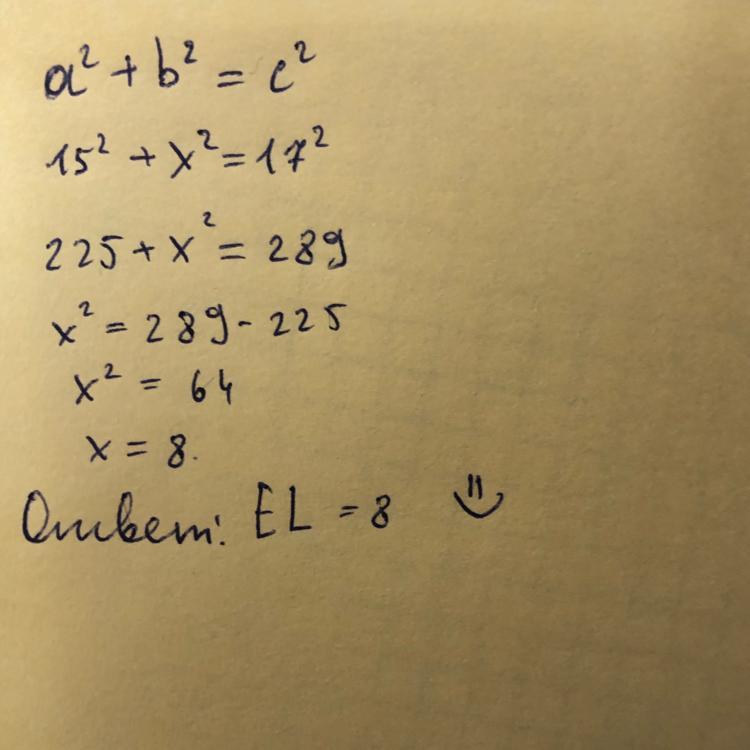 a² + b² = c²
15² + x² = 17²
225 + x² = 289
x² = 289 - 225
x² = 64
x = 8.
Ответ: EL = 8